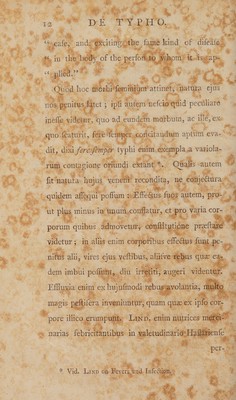 12 DE TYPHO.
“ease, and exciting the same kind of disease
“in the body of the person to whom it is ap-
“plied.”
Quod hoc morbi seminium attinet, natura ejus
nos penitus latet ; ipsi autem nescio quid peculiare
inesse videtur, quo ad eundem morbum, ac ille, ex
quo scaturit, fere semper concitandum aptum eva-
dit, dixi fere semper typhi enim exempla a variola-
rum contagione oriundi extant *. Qualis autem
sit natura hujus veneni recondita, ne conjectura
quidem assequi possum : Effectus suos autem, pro-
ut plus minus in unum conflatur, et pro varia cor-
porum quibus admovetur, conditione præstare
videtur ; in aliis enim corporibus effectus sunt pe-
nitus alii, vires ejus vestibus, aliisve rebus quæ ex-
dem imbui possunt, diu irretiti, augeri videntur.
Effluvia enim ex hujusmodi rebus avolantia, multo
magis pestifera inveniuntur, quam quæ ex ipso cor-
pore illico erumpunt. LIND, enim nutrices merce-
narias febricitantibus in valetudinario Haslerienſi
per-
* Vid. LIND on Fevers and Infection.